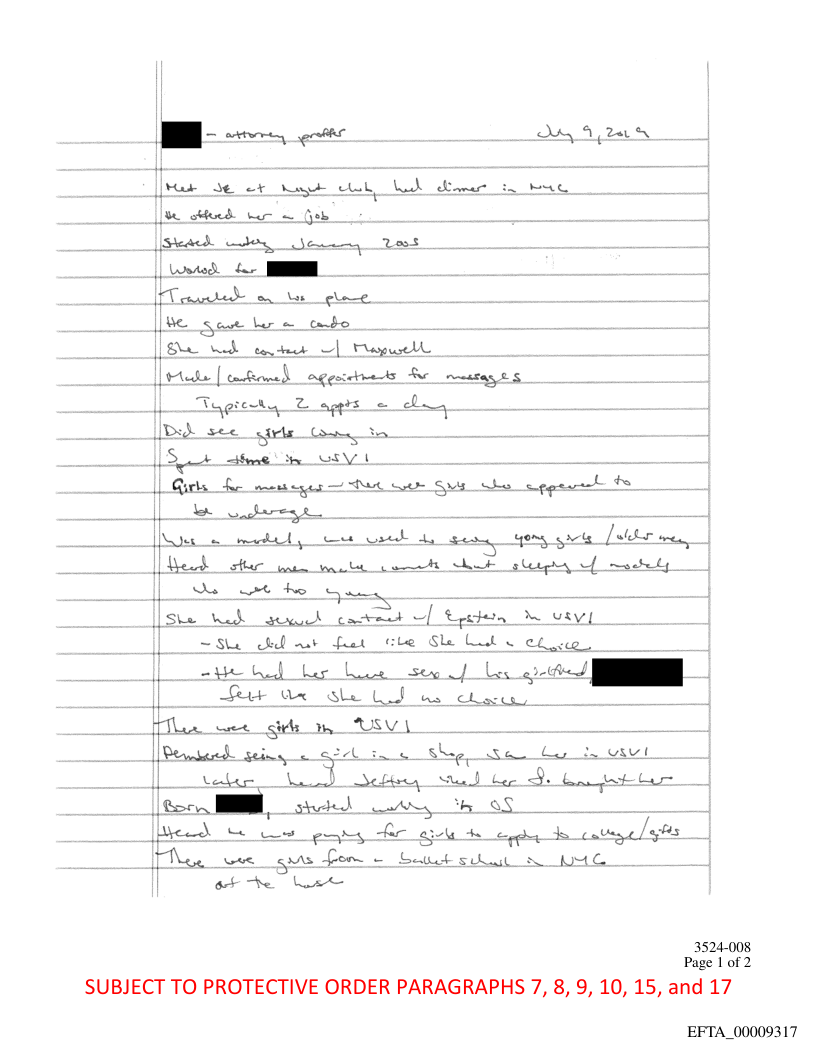 - attorney proffer July 9, 2019
Met JE at night club, had dinner in NYC
He offered her a job
Started working January 2005
Worked for
Traveled on his plane
He gave her a condo
She had contact w/ Maxwell
Made/confirmed appointments for massages
Typically 2 appts a day
Did see girls coming in
Spent time in USVI
Girls for massages - there were girls who appeared to
be underage
Was a model, was used to seeing young girls / older men
Heard other men make comments about sleeping w/ models
who were too young
She had sexual contact w/ Epstein in USVI
- She did not feel like she had a choice
- He had her have sex w/ his girlfriend,
felt like she had no choice
There were girls in USVI
Remembered seeing a girl in a shop, saw her in USVI
later, heard Jeffrey liked her so brought her
Born , started working in 05
Heard he was paying for girls to apply to college/gifts
There were girls from a ballet school in NYC
at the house
3524-008
Page 1 of 2
SUBJECT TO PROTECTIVE ORDER PARAGRAPHS 7, 8, 9, 10, 15, and 17
EFTA_00009317